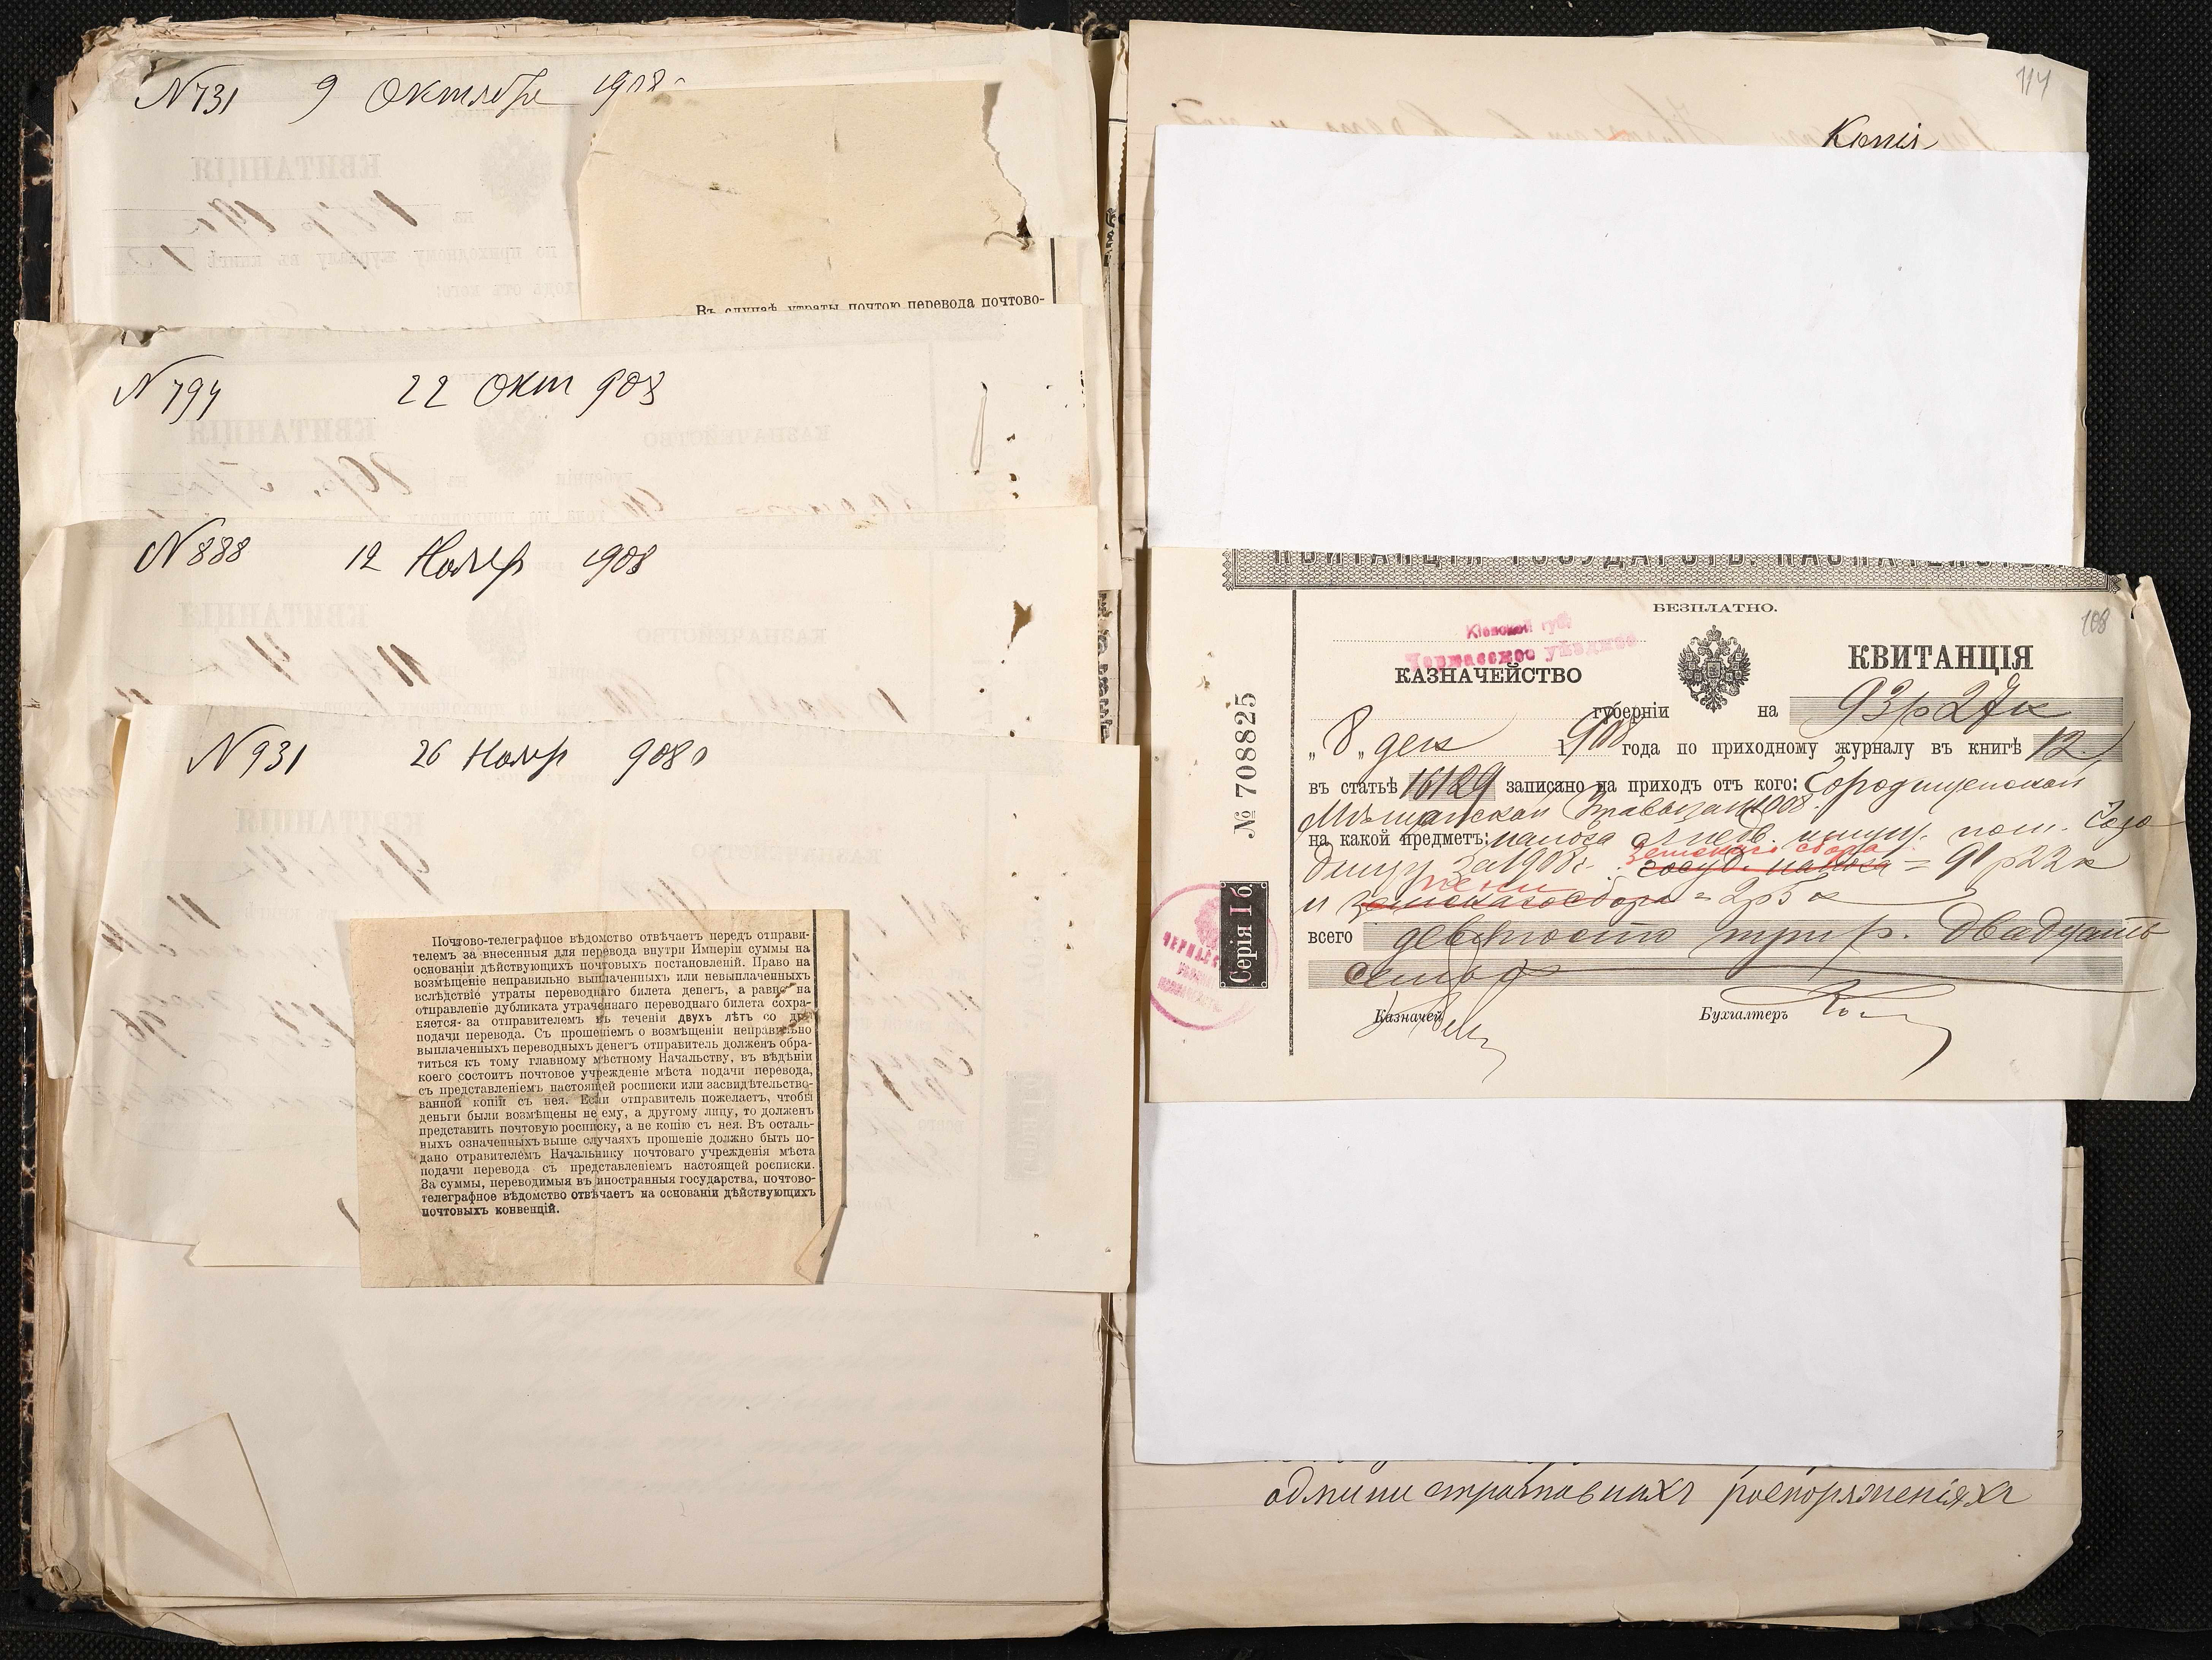 N 731 9 Октября 1908
Въ случаѣ утраты почтою перевода почтово-
N 794 22 Окт 908
N 888 12 Нояб 1908
N 931 26 Нояб 908
Почтово-телеграфное вѣдомство отвѣчаетъ передъ отправи-
телемъ за внесенныя для перевода внутри Имперіи суммы на
основаніи дѣйствующихъ почтовыхъ постановленій. Право на
возмѣщеніе неправильно выплаченныхъ или невыплаченныхъ
вслѣдствіе утраты переводнаго билета денегъ, а равно на
отправленіе дубликата утраченнаго переводнаго билета сохра-
няется за отправителемъ въ теченіи двухъ лѣтъ со дня
подачи перевода. Съ прошеніемъ о возмѣщеніи неправильно
выплаченныхъ переводныхъ денегъ отправитель долженъ обра-
титься къ тому главному мѣстному Начальству, въ вѣдѣніи
коего состоитъ почтовое учрежденіе мѣста подачи перевода,
съ представленіемъ настоящей росписки или засвидѣтельство-
ванной копіи съ нея. Если отправитель пожелаетъ, чтобы
деньги были возмѣщены не ему, а другому лицу, то долженъ
представить почтовую росписку, а не копію съ нея. Въ осталь-
ныхъ означенныхъ выше случаяхъ прошеніе должно быть по-
дано отравителемъ Начальнику почтоваго учрежденія мѣста
подачи перевода съ представленіемъ настоящей росписки.
За суммы, переводимыя въ иностранныя государства, почтово-
телеграфное вѣдомство отвѣчаетъ на основаніи дѣйствующихъ
почтовыхъ конвенцій.
114
Копія
КВИТАНЦІЯ ГОСУДАРСТВ. КАЗНАЧЕЙСТВА
БЕЗПЛАТНО.
108
Кіевской губ.
Черкасское уѣздное
КАЗНАЧЕЙСТВО
КВИТАНЦІЯ
губерніи на 93 р 27 к
„8„ дек 1908 года по приходному журналу въ книгѣ 12
въ статьѣ 16129 записано на приходъ отъ кого: Городищенской
Мѣщанской Управы за 1908
на какой предметъ: налога съ недв. имущ. пос. Горо
дищу за 1908 г. госуд. налога = 91 р 22 к
земскаго сбора
пени
и земскаго сбора = 2 р 5 к
всего девяносто три р. двадцать
семь к
Казначей Бухгалтеръ
№ 708825
Серія I б.
административныхъ распоряженіяхъ